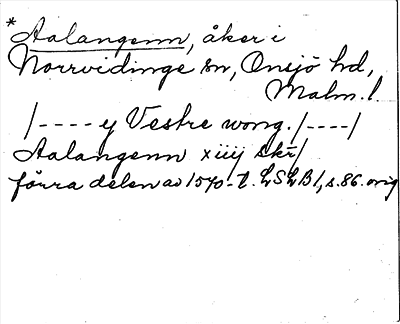 * Aalangenn, åker i
Norrvidinge sn, Onsjö hd,
Malm.l.
/----y Vestre wong./----/
Aalangenn xiiij skr/
förra delen av 1570-t. LSLB1, s.86. orig